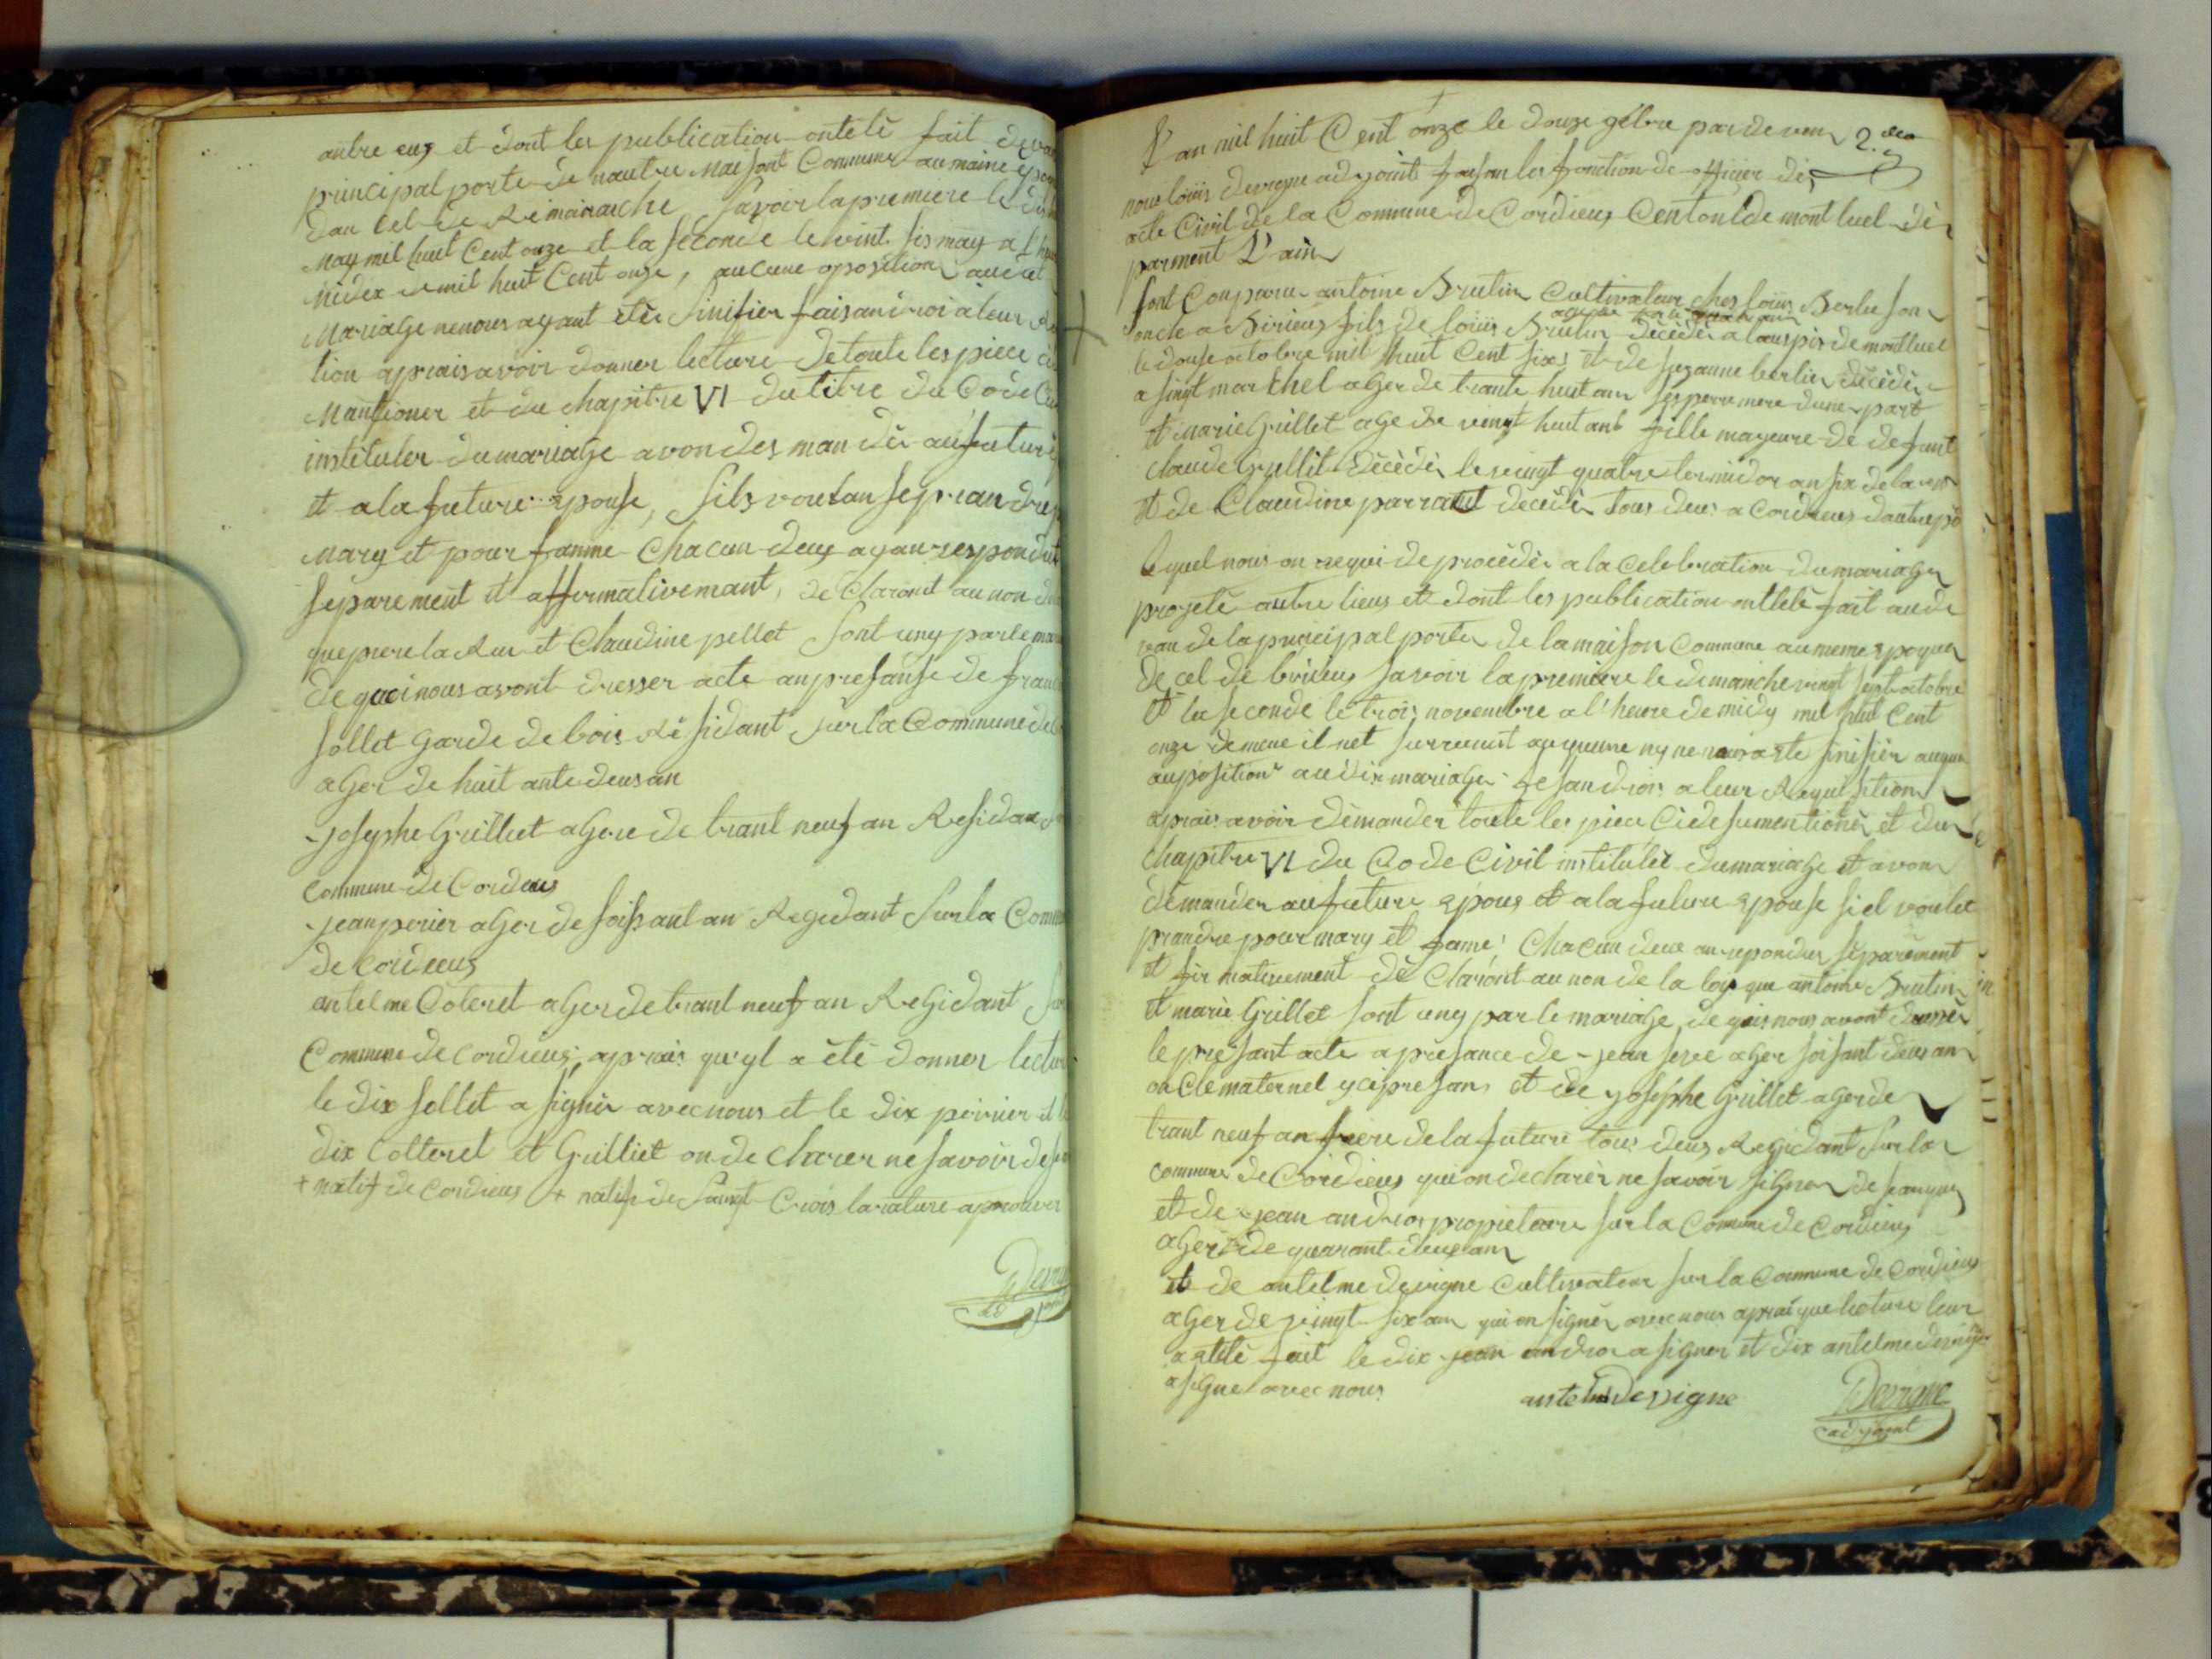 antre eux et dont les publication ontetè fait devan
principal porte de nautre maisont Commune au maine epoque
dan cel de Rimaraiche Savoir la premiere le dix
May mil huit Cent onze et la seconde le vint sis may a l'heure
Midex demil huit Cent onze, aucune oposition audit
Mariage nenous ayant etèr sinifier faisandroi a leur
tion apriais avoir donner lecture de toute les piece
Mantioner et du chapitre VI du titre du Code
instituler du mariage avondes man dèr aufutur
et a la future epouse, silsvoulan seprandre
Mary et pour famme Chacun deux ayan respondu
Separement et affirmativemant, de Claront au non
que piere la et Claudine pellet sont uny par le
de quoi nous avont dresser acte anpresanse de
sollet garde de bois Résidant sur la Commune de
ager de huit ante deus an
josephe Grilliet agere de trant neuf an Residan
Commune de Cordieus
jean perier ager de soissant an Regidant Sur la Comm
de Cordieus
antelme Coteret ager de trant neuf an Regidant
Commune de Cordieus, apriais qu'yl a été donner lectur
le dix sollet a signèr avec nous et le dix périer et
dix Colteret et Grilliet on de charer ne savoir de
+ natif de Cordieus + natif de Saingt Crois la rature aprouver
Devigne
adjoint
L'an mil huit Cent onze le douze 9ebre pardeven 2.
nous loüis devigne adjoint faisan les fonction de officier dè
acte Civil de la Commune de Cordieus Centon de mont luel dè
parment L'ain
sont Conparu antoine Brutin Cultivateur ches loüis Berlie son
oncle a Birieux fils de loüis Brutin décèdèr a lauspis de montluel
le douse octobre mil huit Cent sixs et de suzanne berlie dècèdèr
a singt marthel ager de trante huit an ses perre mere dune part
et Marie Grillet age de vingt huit ans fille mayeure de defunt
Claude Grillit dècèdè le vingt quatre termidor an six de la
et de Claudine parraud dècèdèr tous deus a Cordieus dautre
lequel nous on requi de procèdèr a la celebration du mariage
projetè antre lieus et dont les publication ontetè fait aude
van de la principal porter de la maison Commune au meme epoque
de cel de birieus savoir la premiere le dimanche vingt sept octobre
et la seconde le trois novembre a l'heure de midy mil huit Cent
onze demene il net survenut auqueune ny ne nous a ete sinifier auqun
auposition audix mariage fesandroi a leur Requisition
aprais avoir demander toute les piece Cidesumentionèr et du
Chapitre VI du Code Civil institulèr du mariage et avon
demander aufuture epous et a la future epouse si el voulet
prandre pour mary et fame Chacun deux an repondu sèparèment
et fir mativement dè Claront au non de la loy que antoine Brutin
et marie Grillet sont uny par le mariage, de quoi nous avont dressèr
le présant acte a présance de jean serve ager soisant deus an
on Cle maternel yci presan et de yosephe Grillet ager de
trant neuf an frere de la future tous deus Regidant sur la
commune de Cordieus qui on declarèr ne savoir signer de
et de jean andros propietaire sur la Comune de Cordieus
ager de quarant deux an
et de antelme devigne Cultivateur sur la Commune de Cordieus
ager de vingt six an qui on signèr avec nous apraique lecture leur
a etètè fait le dix jean andros a signer et dix antelme devigne
a signe avec nous
antelme Devigne
Devigne
adjoint